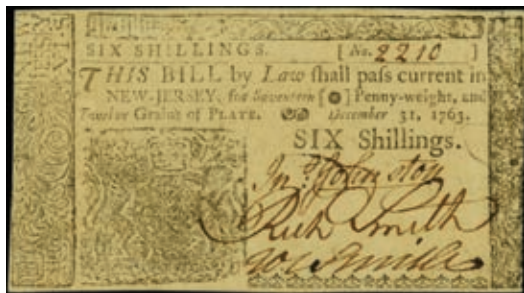 SIX SHILLINGS. [No. 2210 ]
THIS BILL by Law ſhall paſs current in
NEW-JERSEY, for Seventeen [ ] Penny-weight, and
Twelve Grains of PLATE. December 31, 1763.
SIX Shillings.
Jno Johnston
Rich Smith